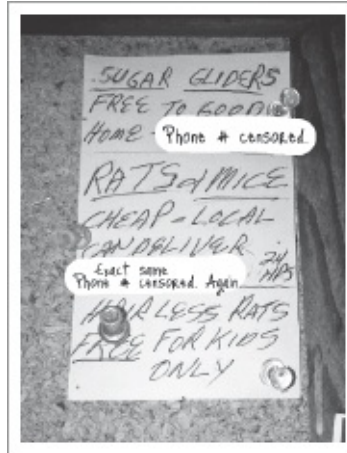 SUGAR GLIDERS
FREE TO GOOD
HOME - Phone # censored.
RATS & MICE
CHEAP - LOCAL
CAN DELIVER 24
HRS
Exact same
Phone # censored. Again.
HAIRLESS RATS
FREE FOR KIDS
ONLY